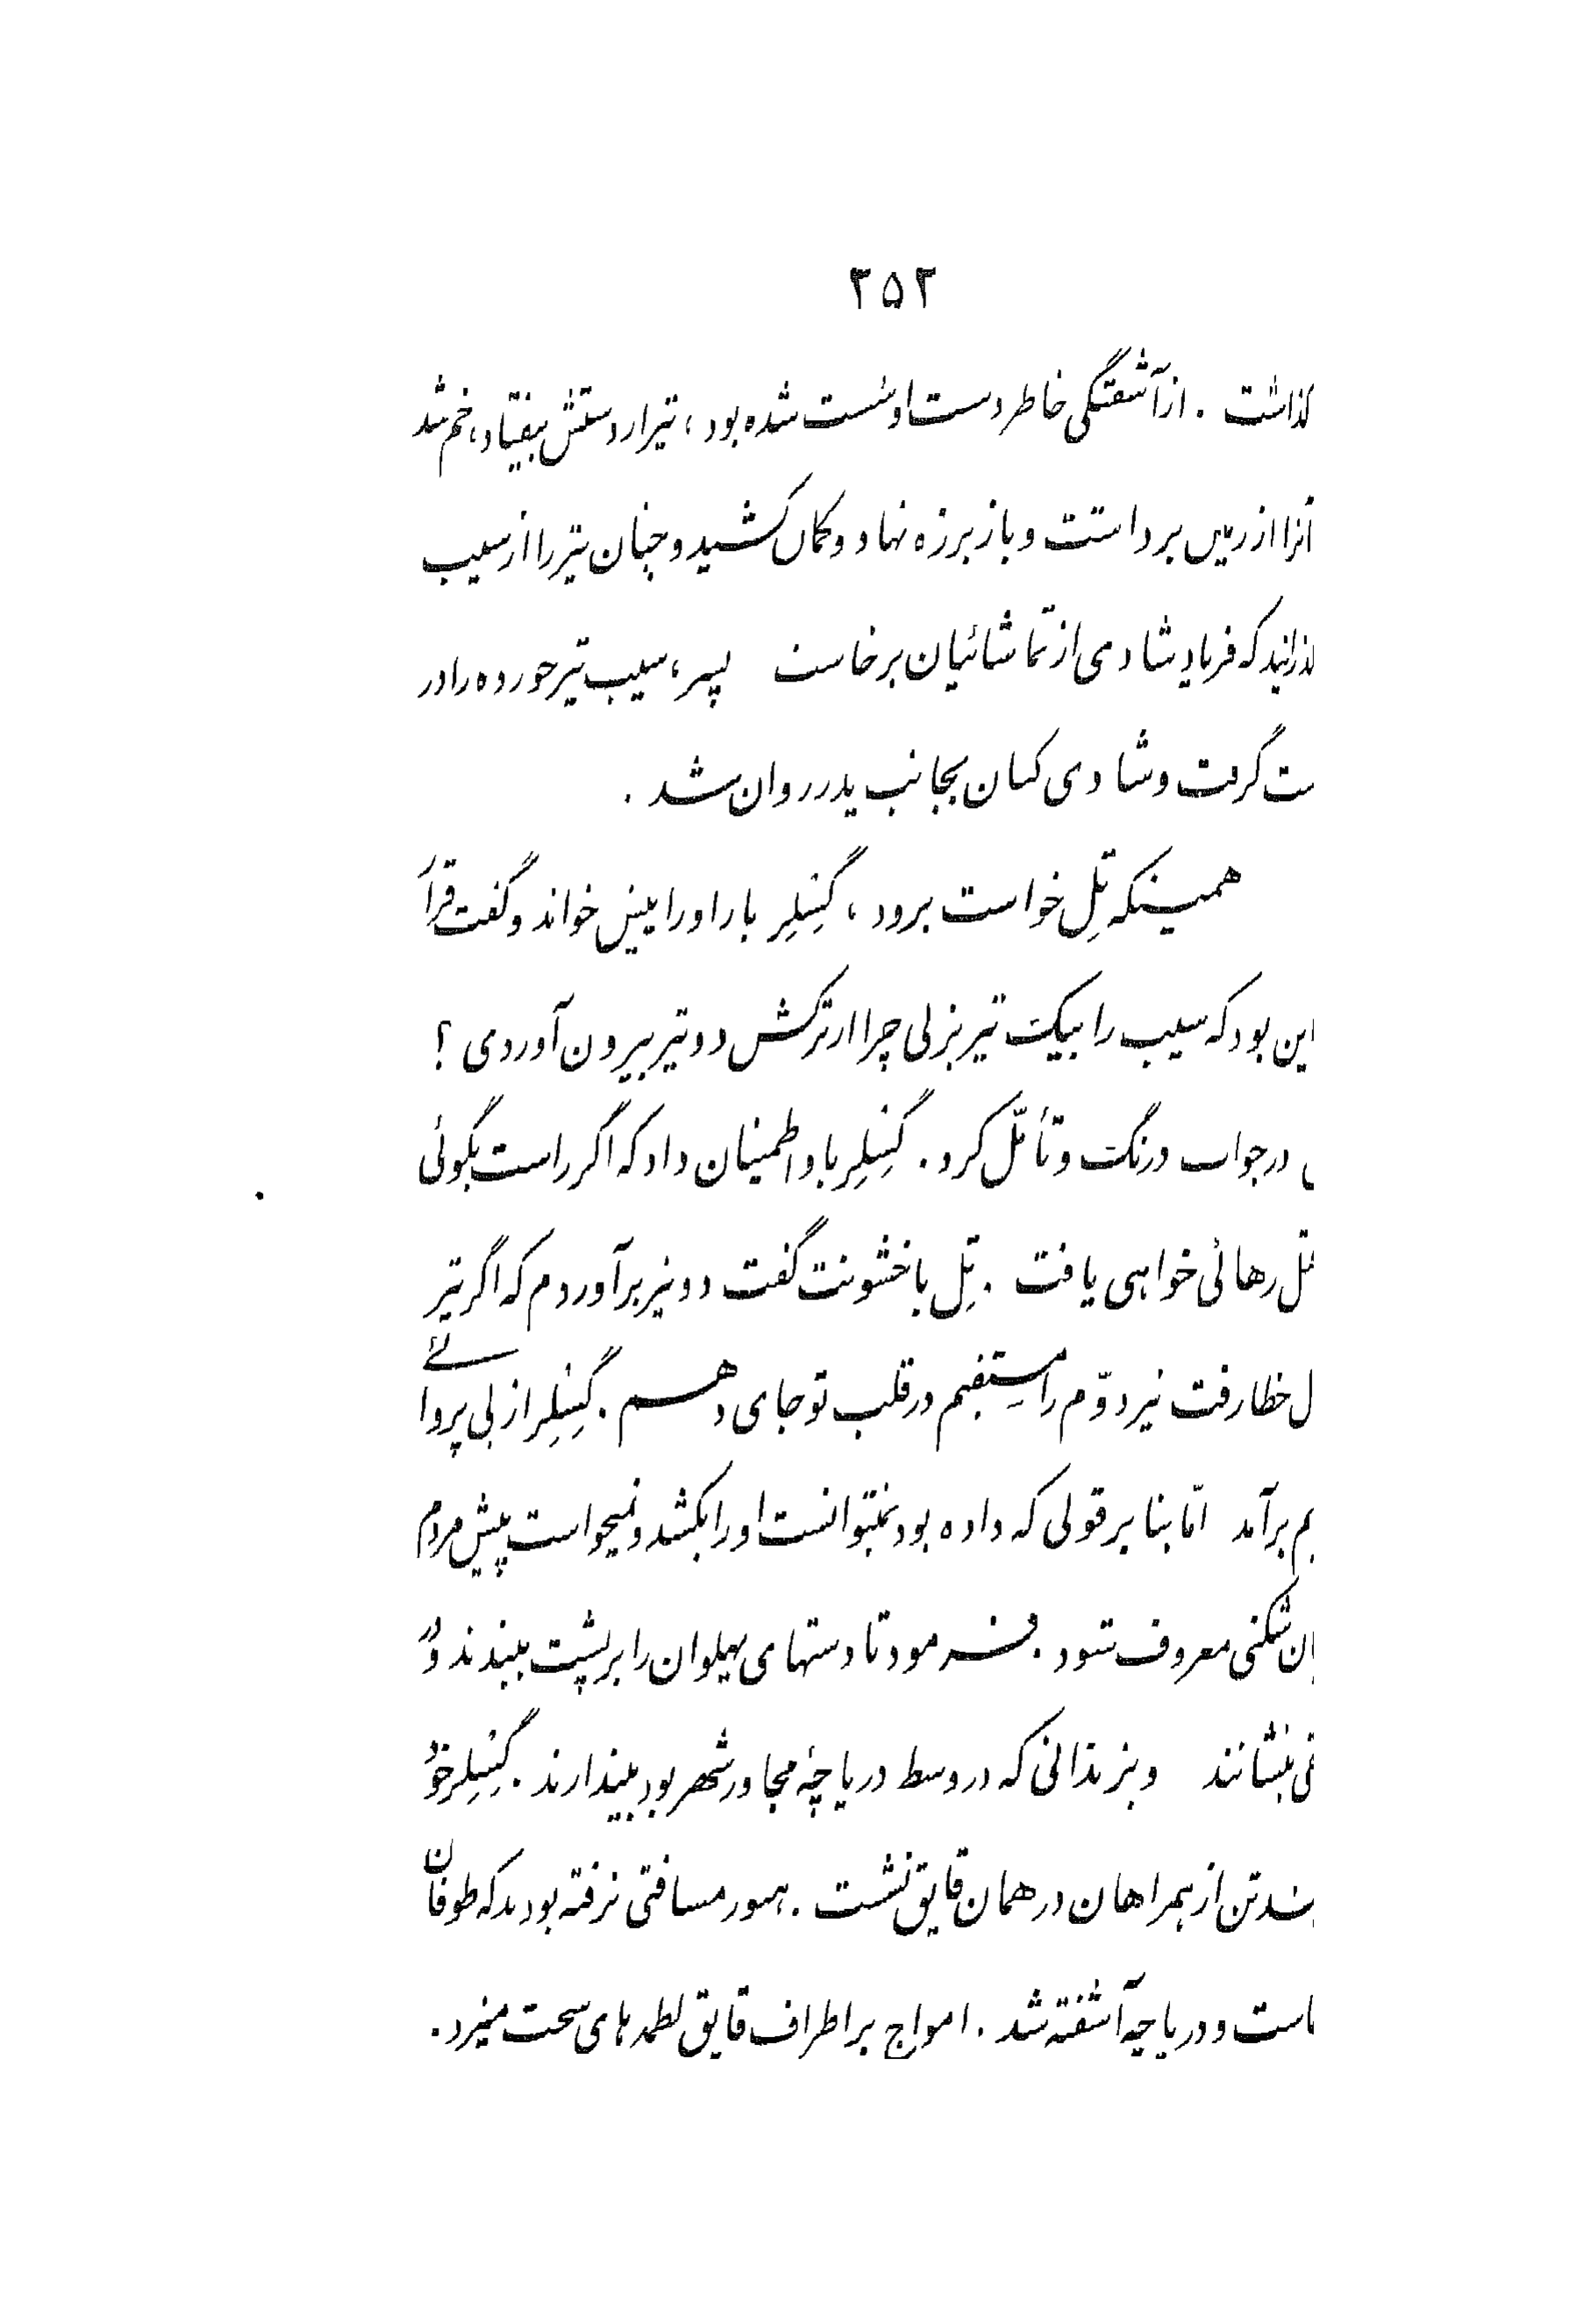 ۲۵۲
گذاشت . از آشفتگی خاطر دست او سُست شده بود ، تیر از دستش بیفتاد ، خم شد
آنرا از زمین برداشت و باز بر زه نهاد و کمان کشید و چنان تیر را از سیب
گذرانید که فریاد شادی از تماشائیان برخاست پسر ، سیب تیر خورده را در
ست گرفت و شادی کنان بجانب پدر روان شد .
همینکه تِل خواست برود ، گِسْلِر باز او را پیش خواند و گفت قرار
این بود که سیب را بیک تیر بزنی چرا از ترکش دو تیر بیرون آوردی ؟
در جواب درنگ و تأمّل کرد . گِسْلِر باو اطمینان داد که اگر راست بگوئی
قتل رهائی خواهی یافت . تِل با خشونت گفت دو تیر برآوردم که اگر تیر
ل خطا رفت تیر دوّم را مستقیم در قلب تو جای دهم . گِسْلِر از بی پروائی
بم برآمد امّا بنا بر قولی که داده بود نمیتوانست او را بکشد و نمیخواست پیش مردم
ان شکنی معروف شود . فرمود تا دستهای پهلوان را بر پشت ببندند و در
قی بنشانند و بزندانی که در وسط دریاچهٔ مجاور شهر بود بیندازند . گِسْلِر خود
چند تن از همراهان در همان قایق نشست . هنوز مسافتی نرفته بودند که طوفان
خاست و دریاچه آشفته شد . امواج بر اطراف قایق لطمه های سخت میزد .